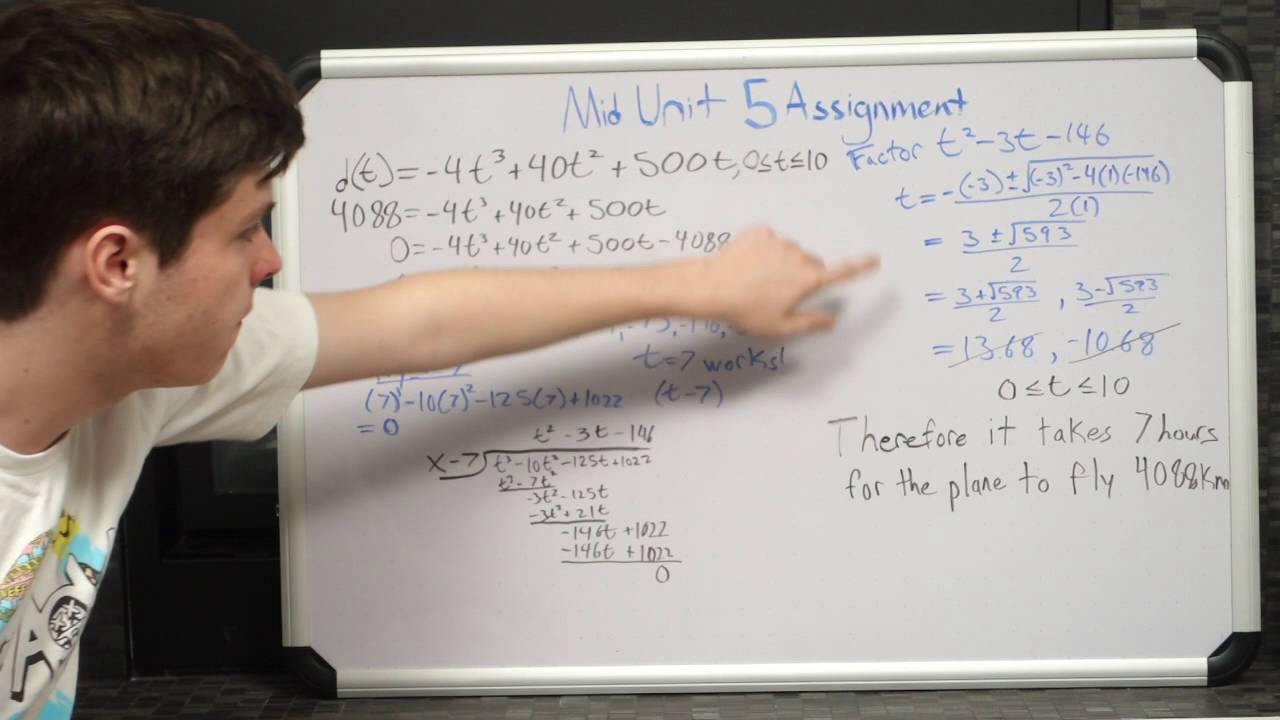 Mid Unit 5 Assignment
d(t)=-4t³+40t²+500t, 0≤t≤10
4088=-4t³+40t²+500t
0=-4t³+40t²+500t-4088
t=7 works!
(7)³-10(7)²-125(7)+1022 (t-7)
=0
t²-3t-146
x-7 t³-10t²-125t+1022
t³-7t²
-3t²-125t
-3t²+21t
-146t+1022
-146t+1022
0
Factor t²-3t-146
t=-(-3)±√(-3)²-4(1)(-146)
2(1)
=3±√593
2
=3+√593, 3-√593
2 2
=13.68, -10.68
0≤t≤10
Therefore it takes 7 hours
for the plane to fly 4088Km